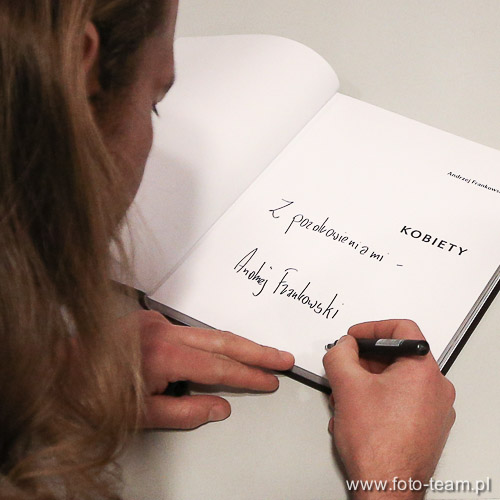 Andrzej Frankows
KOBIETY
Z pozdrowieniami -
Andrzej Frankowski
www.foto-team.pl